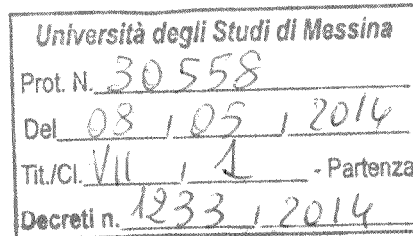 Università degli Studi di Messina
Prot. N. 30558
Del 08 / 05 / 2014
Tit./Cl. VII / 1 - Partenza
Decreti n. 1233 / 2014